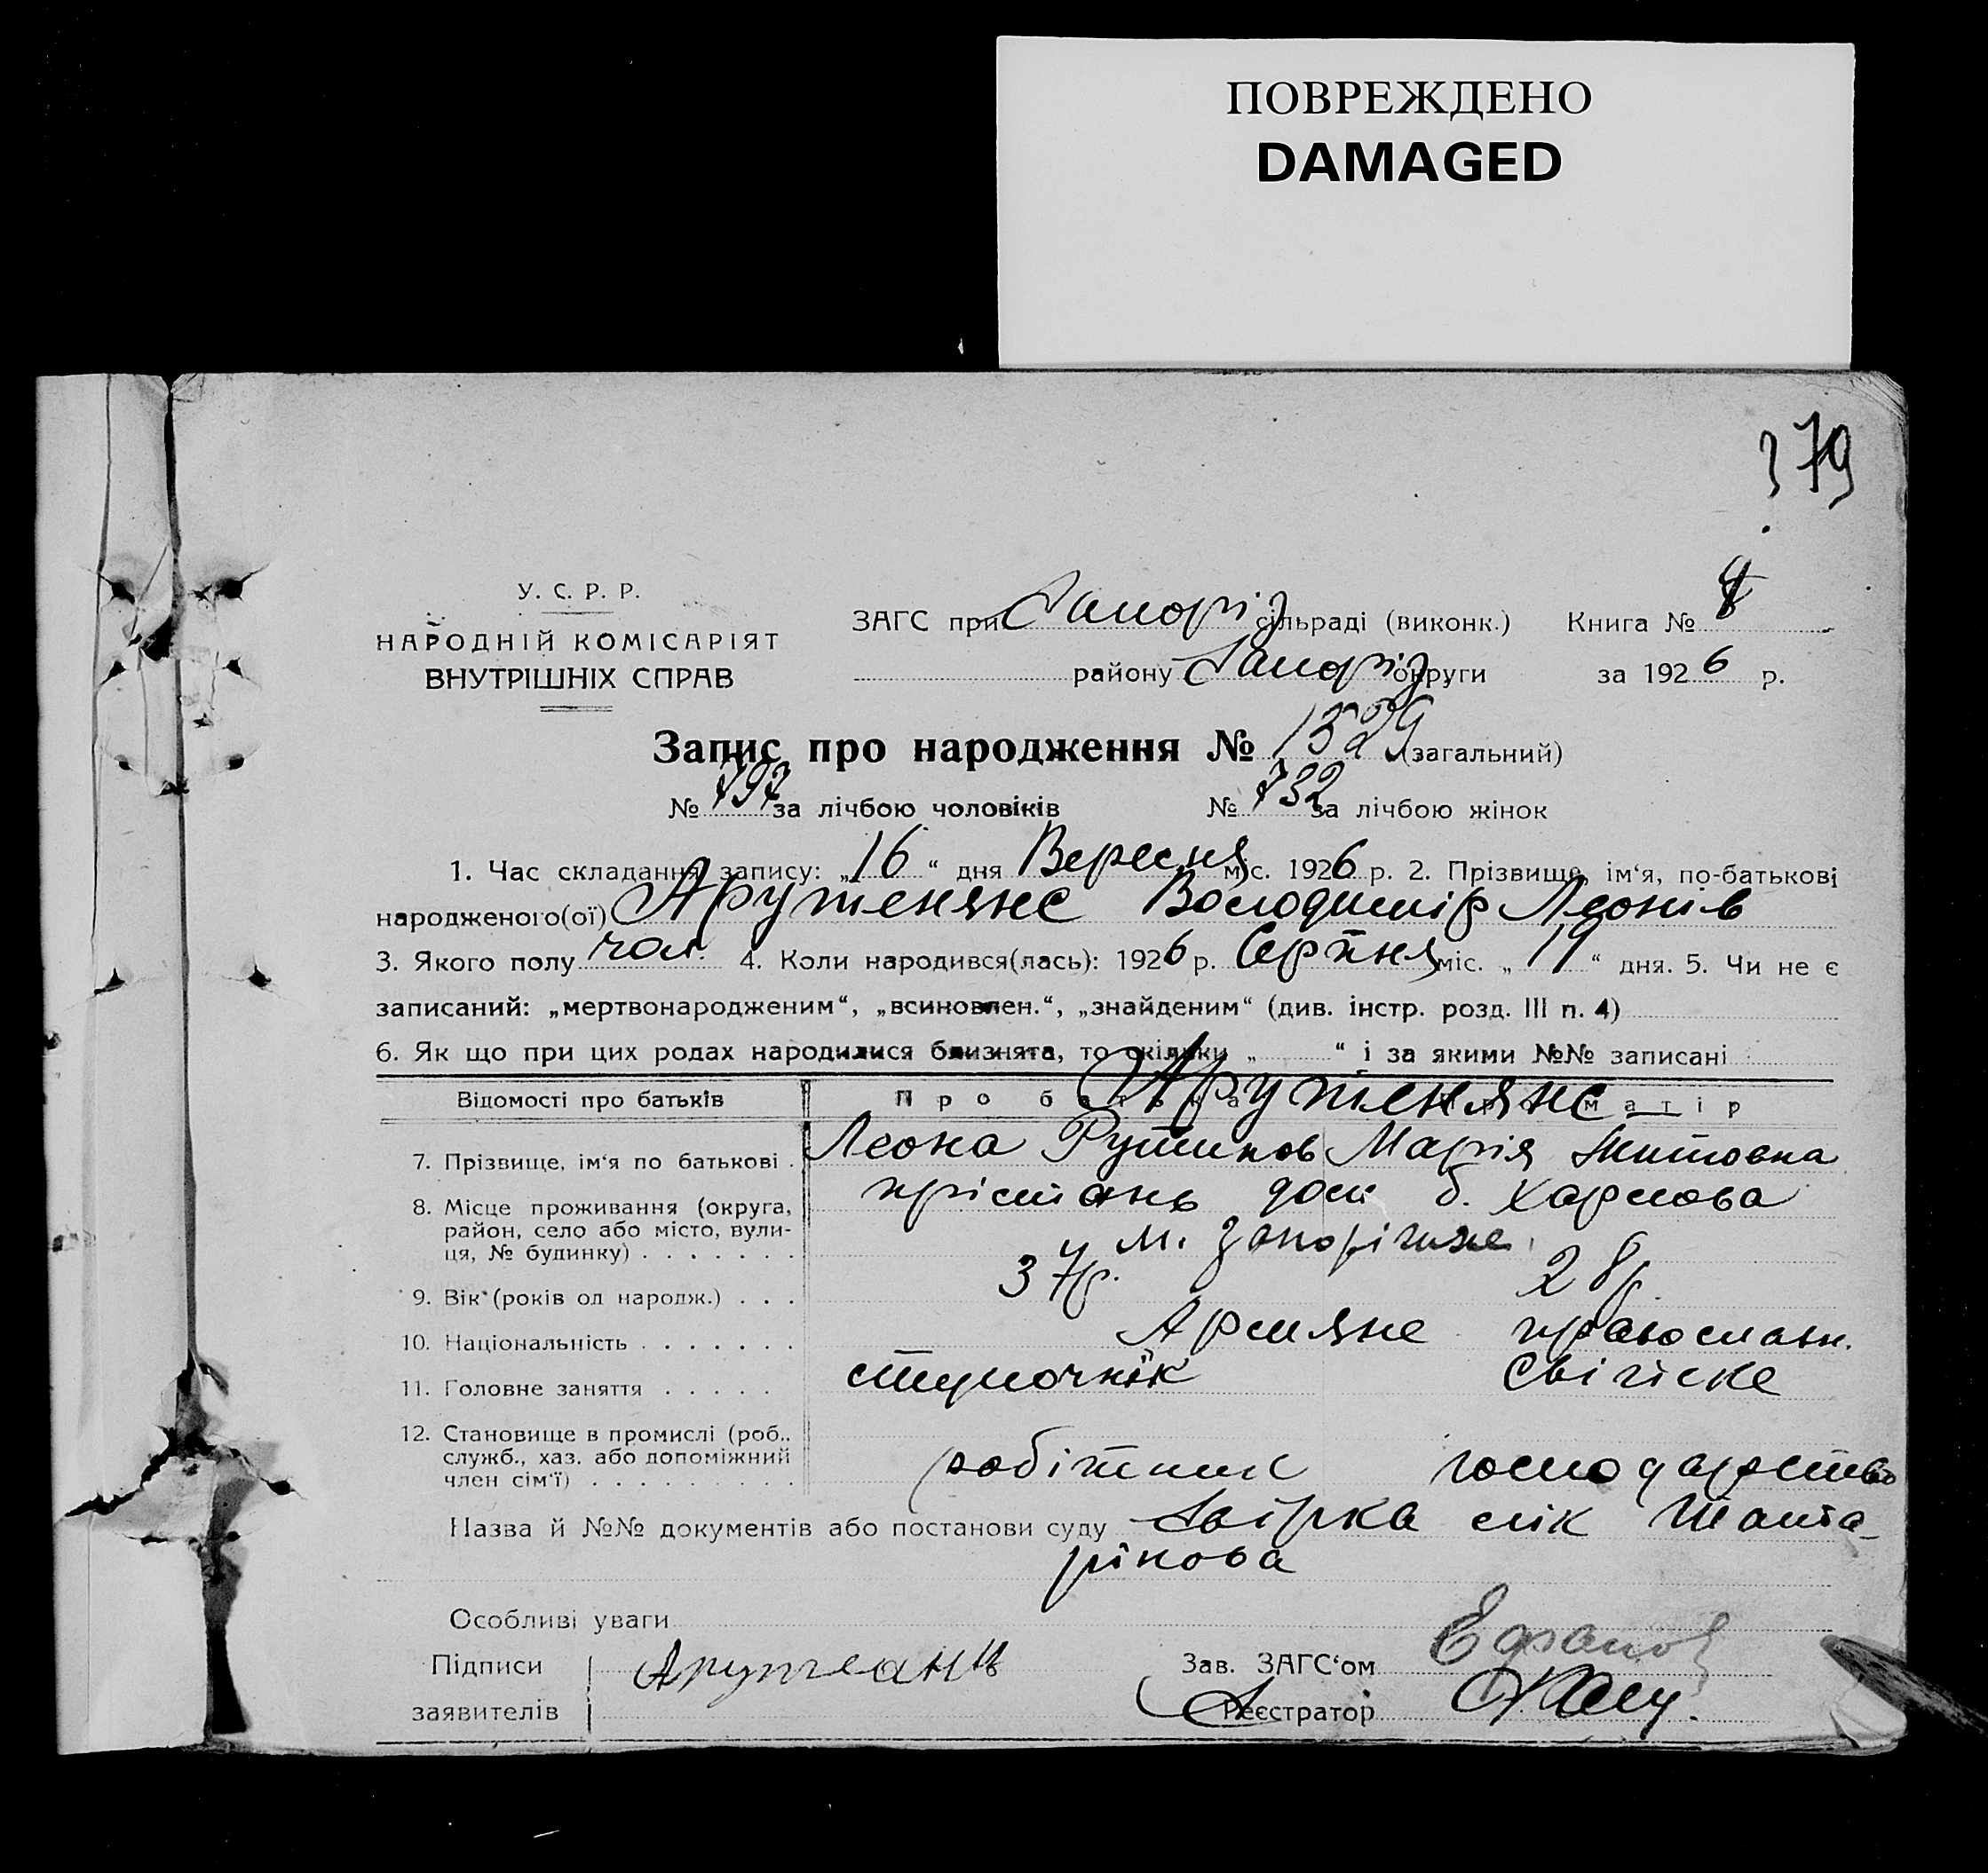 ПОВРЕЖДЕНО
DAMAGED
379
У. С. Р. Р.
НАРОДНІЙ КОМІСАРІЯТ
ВНУТРІШНІХ СПРАВ
ЗАГС при Запоріз сільраді (виконк.) Книга № 8
району Запоріз округи за 1926 р.
Запис про народження № 1529 (загальний)
№ 797 за лічбою чоловіків № 732 за лічбою жінок
1. Час складання запису: „16“ дня Вересня міс. 1926 р. 2. Прізвище, ім‘я, по-батькові
народженого(ої) Арутенянс Володимір Леонів
3. Якого полу чол. 4. Коли народився(лась): 1926 р. Серпня міс. „19“ дня. 5. Чи не є
записаний: „мертвонародженим“, „всиновлен.“, „знайденим“ (див. інстр. розд. III п. 4)
6. Як що при цих родах народилися близнята, то скільки „ “ і за якими №№ записані
Відомості про батьків Про батька Про матір
Арутенянс
7. Прізвище, ім‘я по батькові . Леона Марія
8. Місце проживання (округа, прістань дом б. Харлова
район, село або місто, вули-
ця, № будинку) . . . . . . . м. Запоріжже
9. Вік (років од народж.) . . . 37р. 28р.
10. Національність . . . . . . . Армяне православн.
11. Головне заняття . . . . . стуночнік
12. Становище в промислі (роб..
служб., хаз. або допоміжний робітник господарство
член сім‘ї) . . . . . . . . .
Назва й №№ документів або постанови суду
рікова
Особливі уваги
Підписи Зав. ЗАГС‘ом
заявителів Реєстратор